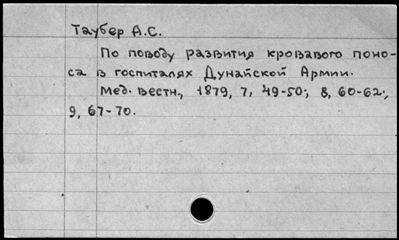 Таубер А.С.
По поводу развития кровавого поно-
са в госпиталях Дунайской Армии.
Мед. вестн., 1879, 7, 49-50; 8, 60-62;
9, 67-70.